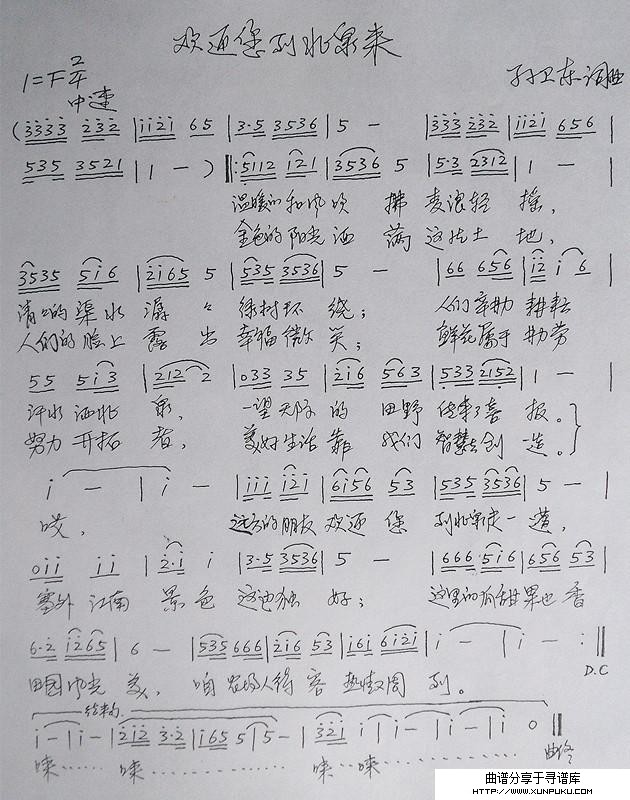 欢迎您到北泉来
1=F 2/4
中速
孙卫东词曲
(3333 232 | 1121 65 | 3·5 3536 | 5 — | 333 232 | 1121 656 |
535 3521 | 1 — ) ‖: 5112 121 | 3536 5 | 5·3 2312 | 1 — |
温暖的和风吹拂麦浪轻摇，
金色的阳光洒满这片土地，
3535 516 | 2165 5 | 535 3536 | 5 — | 66 656 | 12 1 6 |
清清的渠水潺潺绿树环绕； 人们辛勤耕耘
人们的脸上露出幸福微笑； 鲜花属于勤劳
55 513 | 212 2 | 033 35 | 216 563 | 533 2152 | 1 — |
汗水洒北泉，一望无际的田野传来了喜报。
努力开拓者，美好生活靠我们智慧去创造。
1 — | 1 — | 111 121 | 6156 53 | 535 3536 | 5 — |
哎，远方的朋友欢迎您到北泉走一遭，
011 11 | 2·1 1 | 3·5 3536 | 5 — | 666 516 | 656 53 |
塞外江南景色这边独好； 这里的瓜甜果也香
6·2 1265 | 6 — | 535 666 | 216 53 | 161 6121 | 1 — | 1 — :‖
田园风光美，咱农场人待客热情周到。
D.C
结束句
1 — | 1 — | 212 3·2 | 165 5 | 5 — | 321 1 | 1 — | 1 — | 1 0 ‖
来…… 来…… 来 来……
曲终
曲谱分享于寻谱库
HTTP://WWW.XUNPUKU.COM